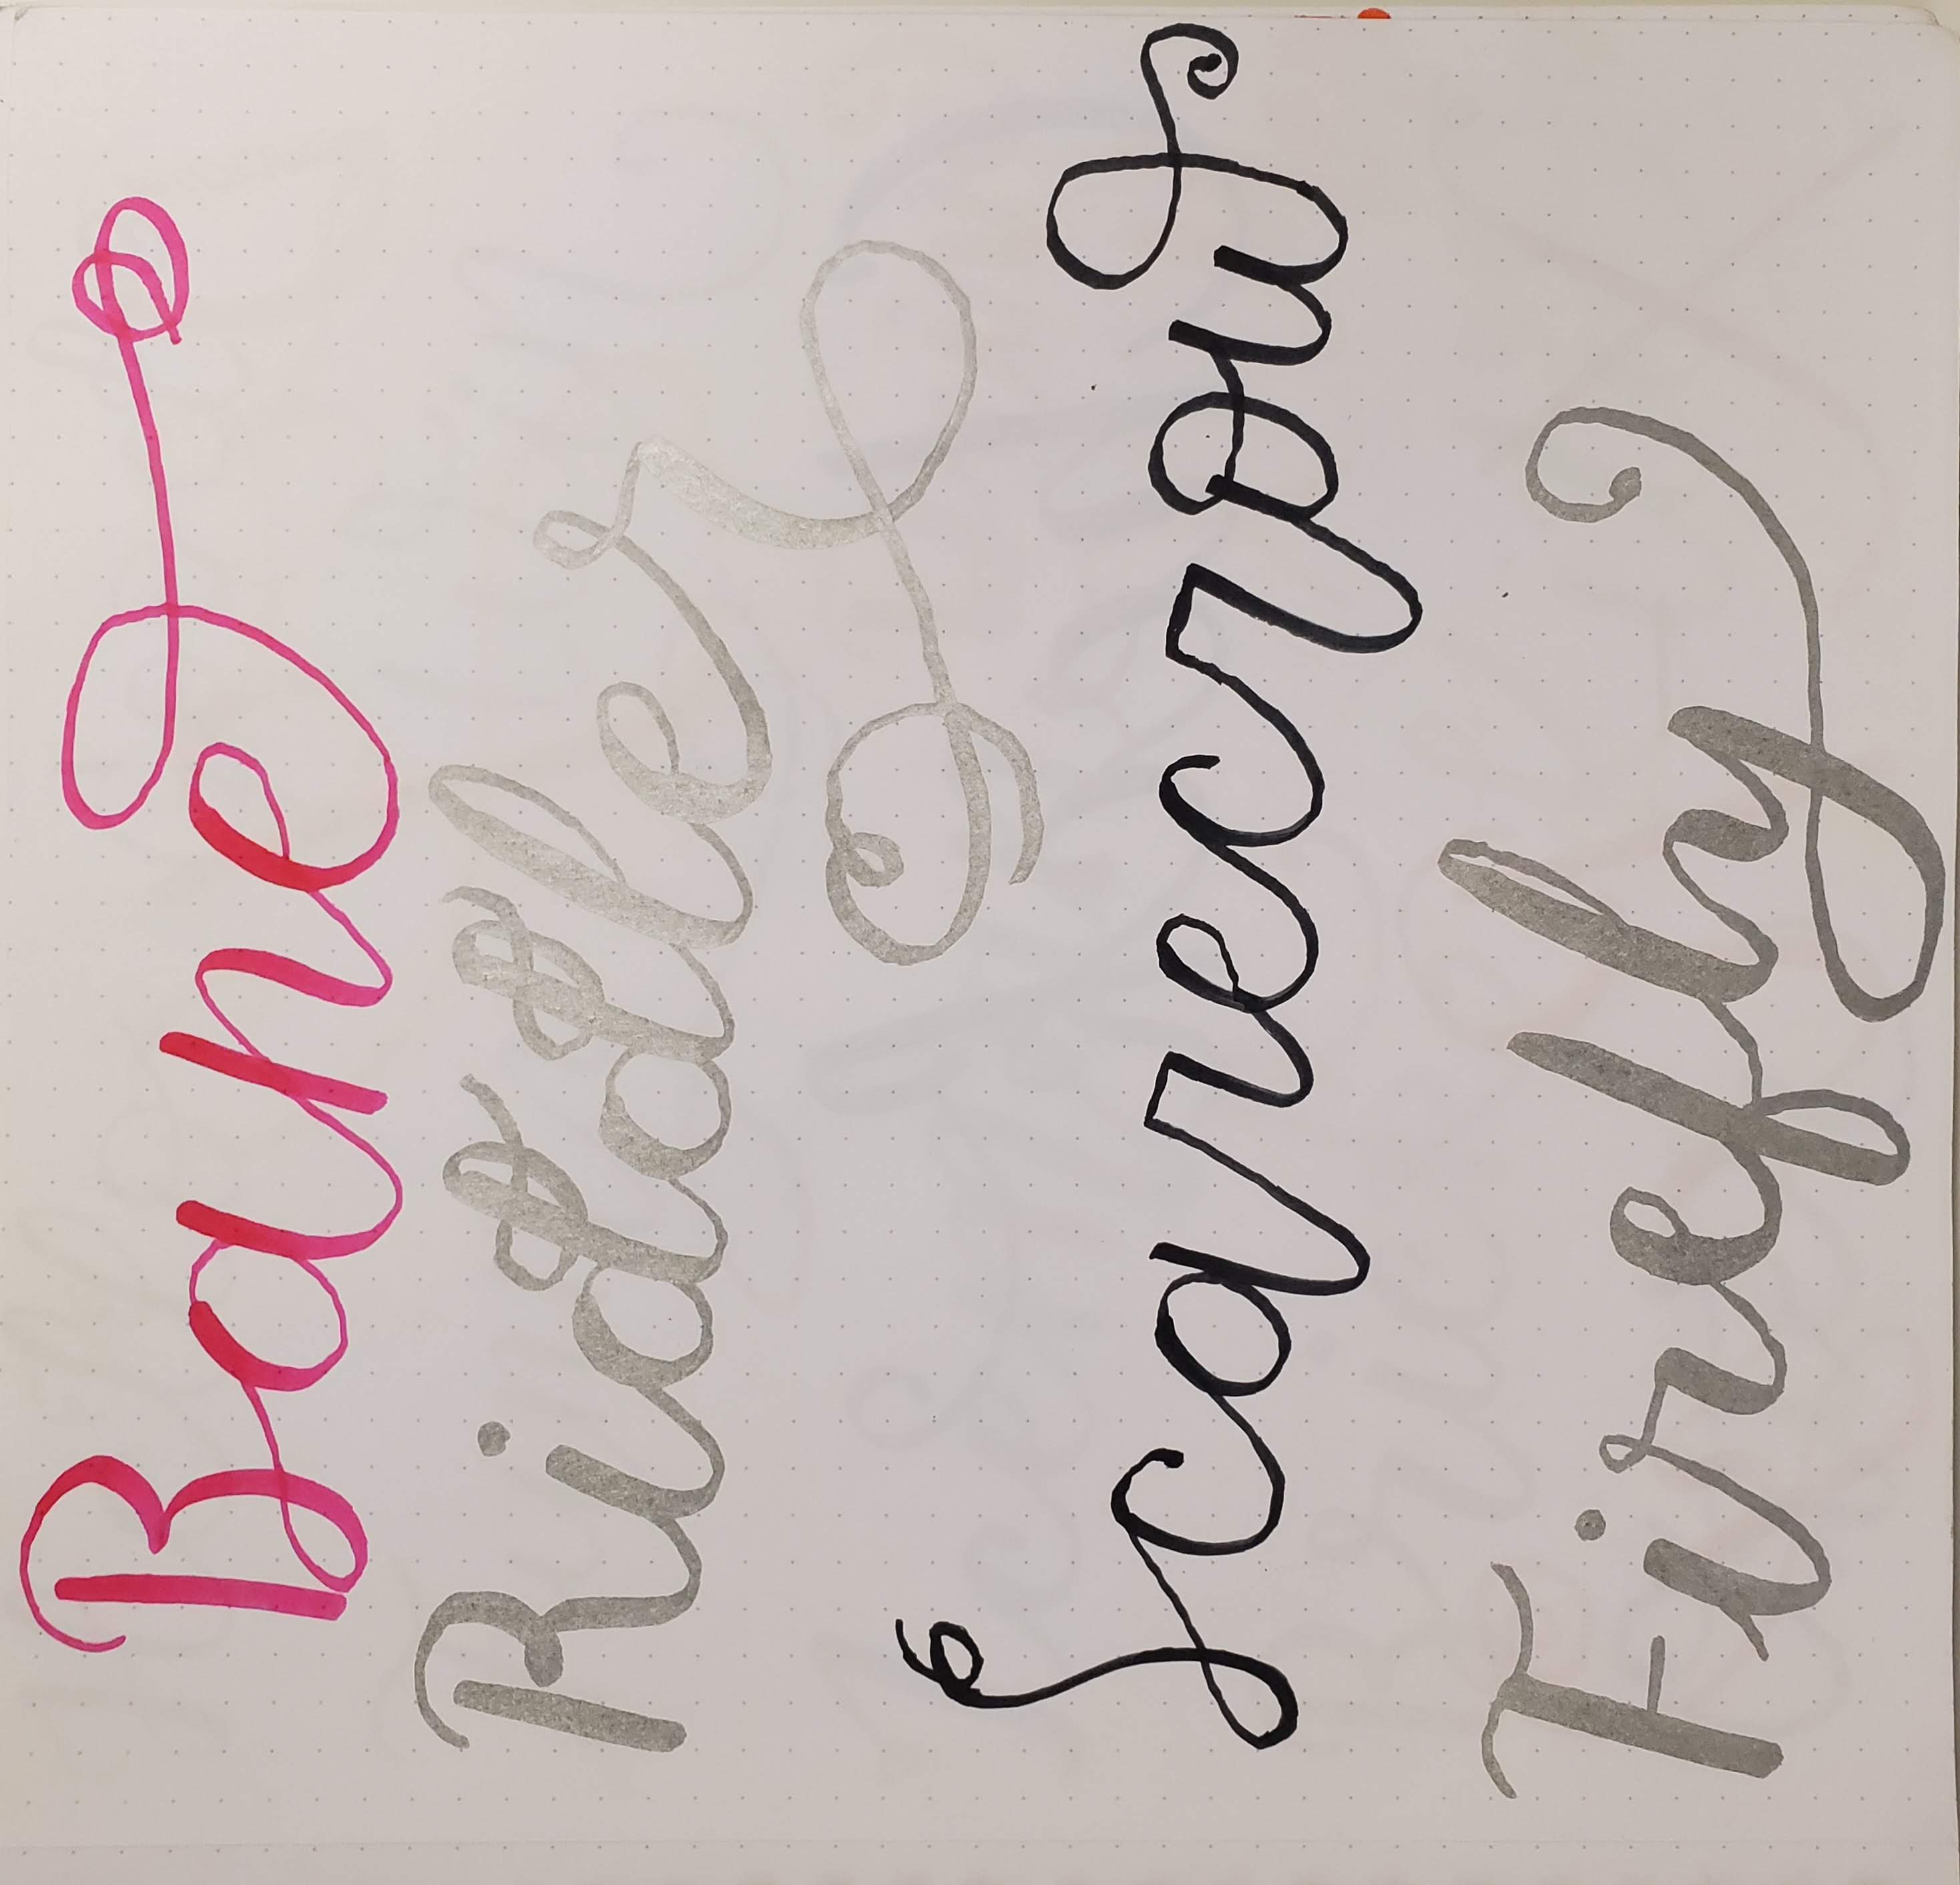 Bane
Riddler
Scarecrow
Firefly